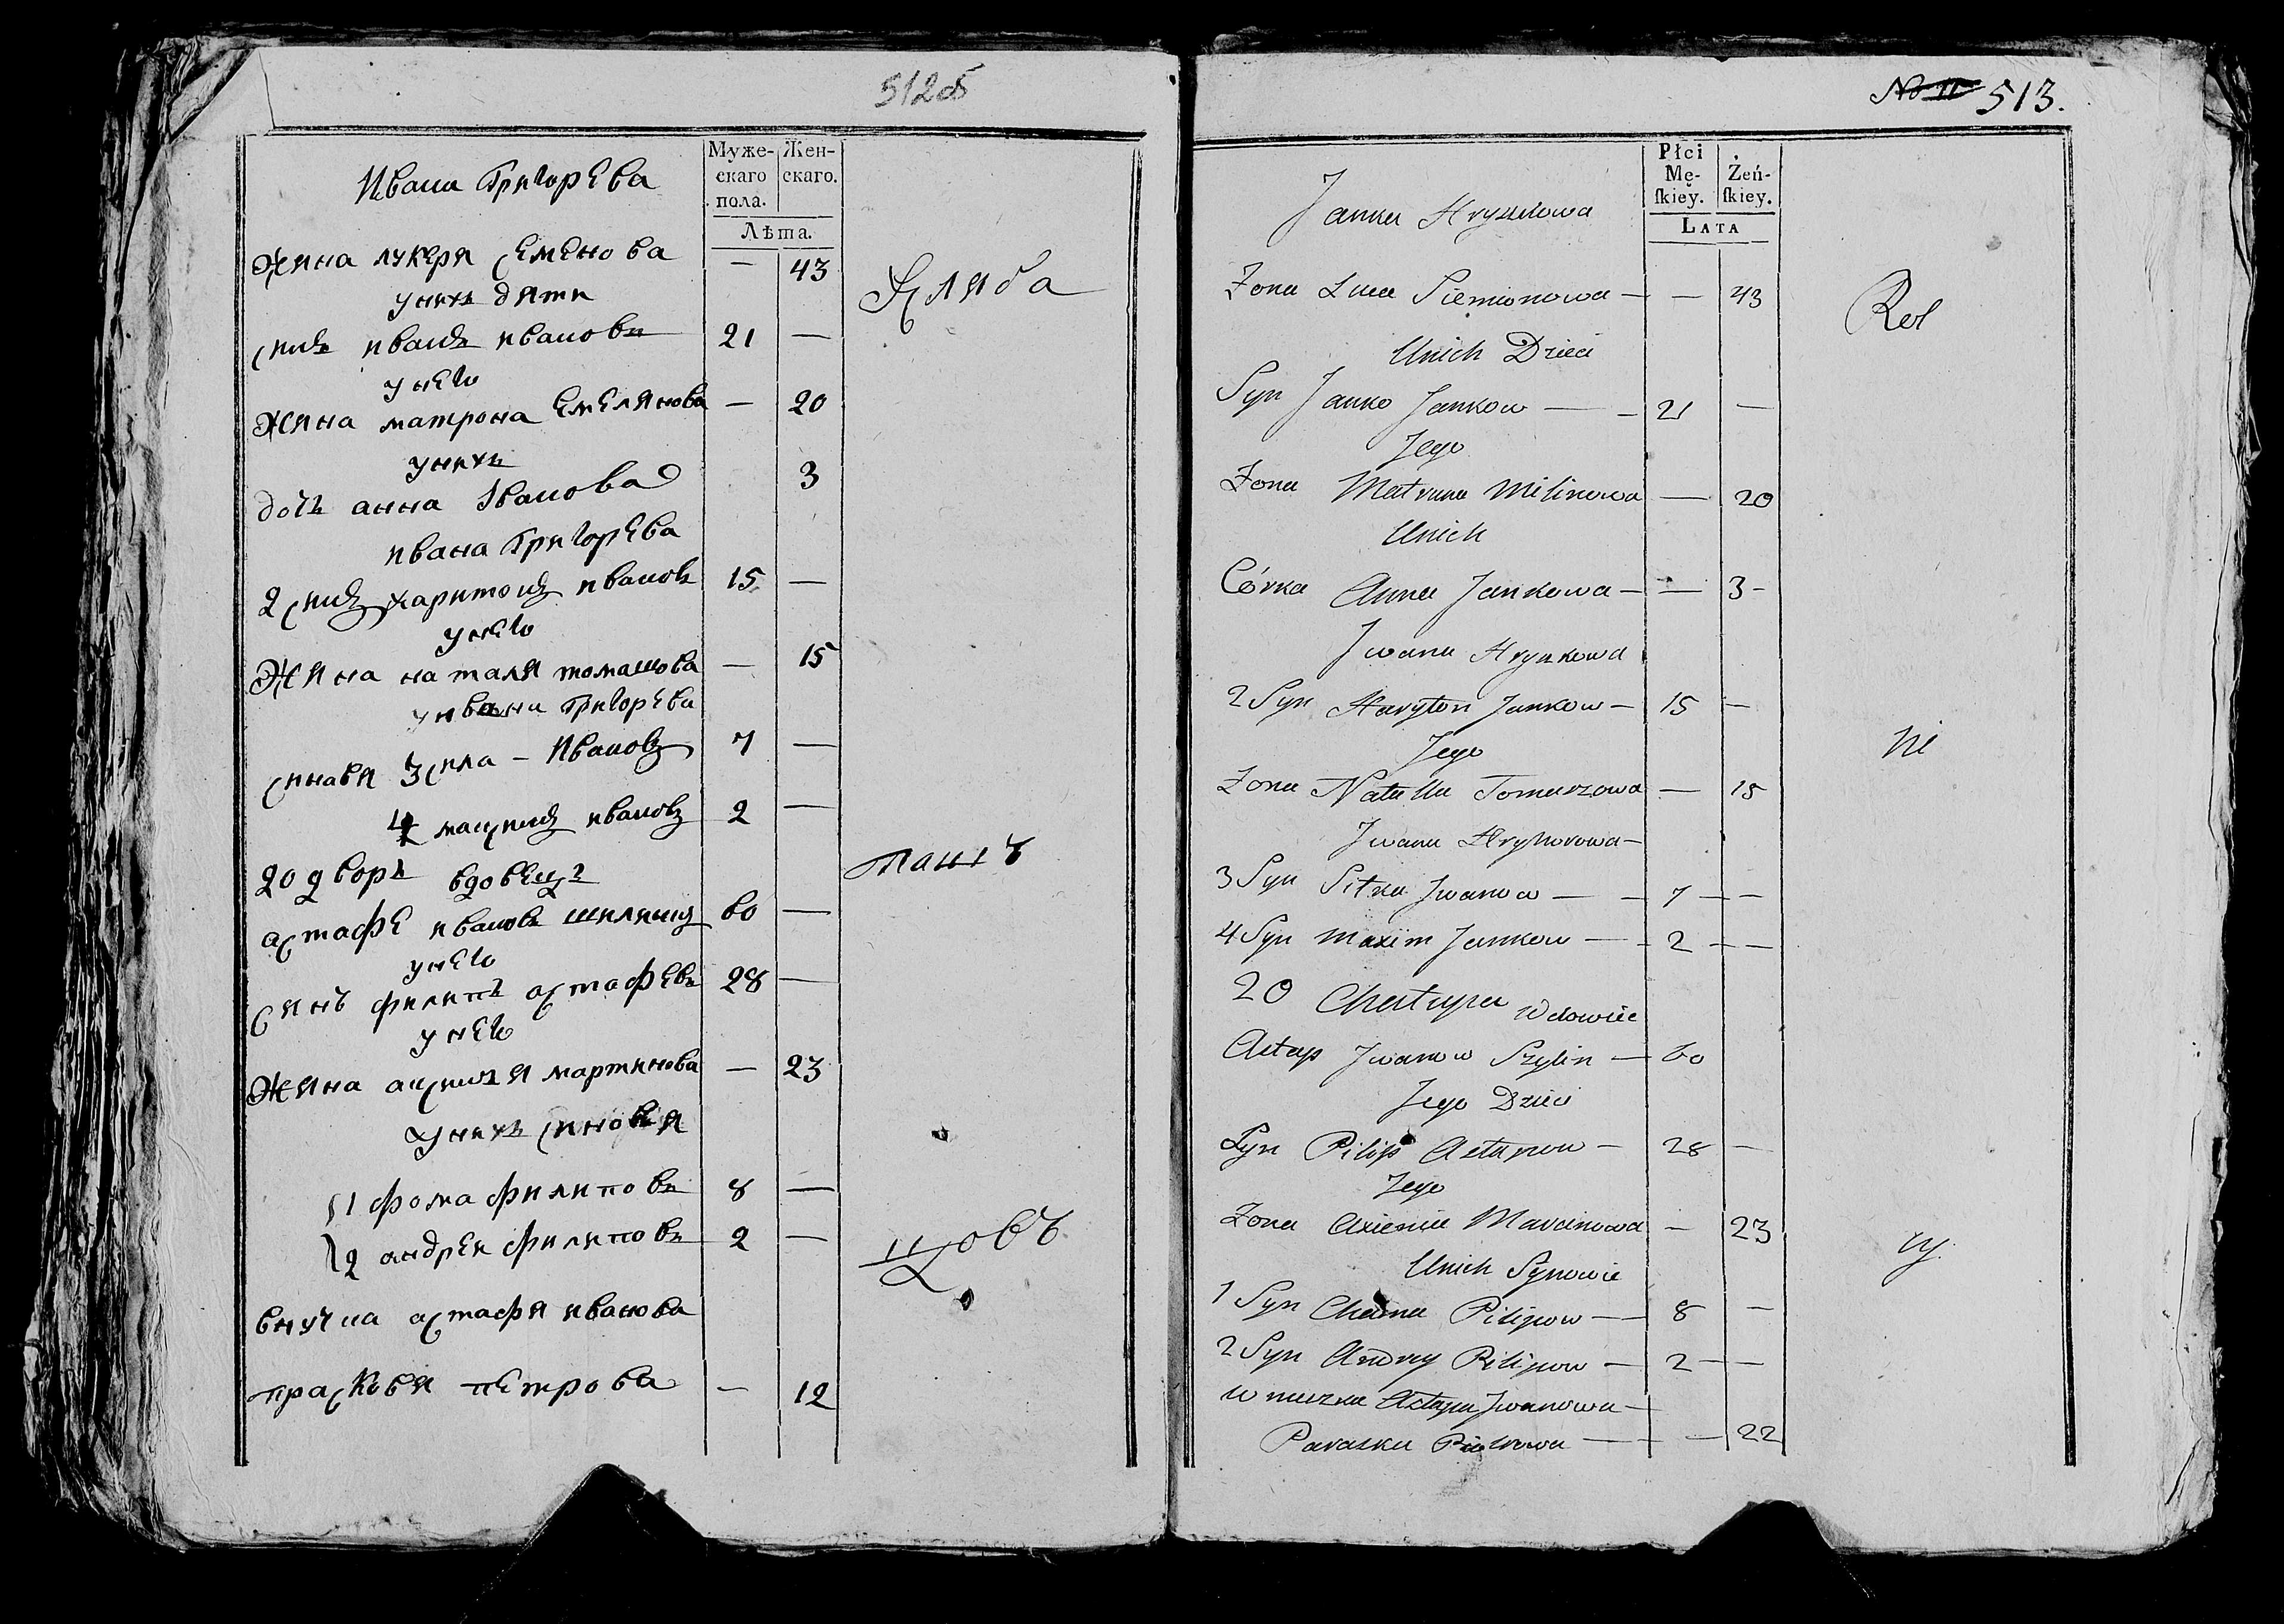 512об
Муже-
скаго
пола.
Жен-
скаго.
Лѣта.
Ивана Григорева
жена лукеря семенова — 43
унихъ дяти
синъ иванъ ивановъ 21 —
унего
жяна матрона Емелянова — 20
унихъ
дочъ анна Iванова 3
ивана Григорева
2 синъ харитонъ ивановъ 15 —
унего
жяна наталя томашова — 15
уивана Григорева
синавя 3 сила – Ивановъ 7 —
4 максимъ ивановъ 2 —
20 дворъ вдовецъ
астафе ивановъ шилинъ 60 —
унего
синъ филипъ астафевъ 28 —
унего
жяна аксиня мартинова — 23
унихъ синовя
1 фома филиповъ 8 —
2 андреи филиповъ 2 —
внучка астафя иванова
прасковя петрова — 12
Хляба
пашъ
цовъ
No 11 513.
Płci
Mę-
skiey.
Żeń-
skiey.
LATA
Janka Hryszkowa
Zona Luca Siemionowa — — 43
Unich Dzieci
Syn Janko Jankow — — 21 —
Jego
Zona Matruna Milinowa — 20
Unich
Córka Anna Jankowa — — 3 -
Jwana Hrynkowa
2 Syn Haryton Jankow — 15 —
Jego
Zona Natalla Tomaszowa — 15
Jwana Hryhorowa —
3 Syn Jwanow — — 7 — —
4 Syn Maxim Jankow — — 2 — —
20 Chatupa Wdowiec
Astap Jwanow Szylin — 60
Jego Dzieci
Syn Pilip Astapow — 28 —
Jego
Zona Axienia Marcinowa — 23
Unich Synowie
1 Syn Chama Pilipow — 8 —
2 Syn Andrey Pilipow — 2 — —
Wnuczka Astapa Jwanowa —
Paraska Piotrowa — — — 22
Rol
ni
cy